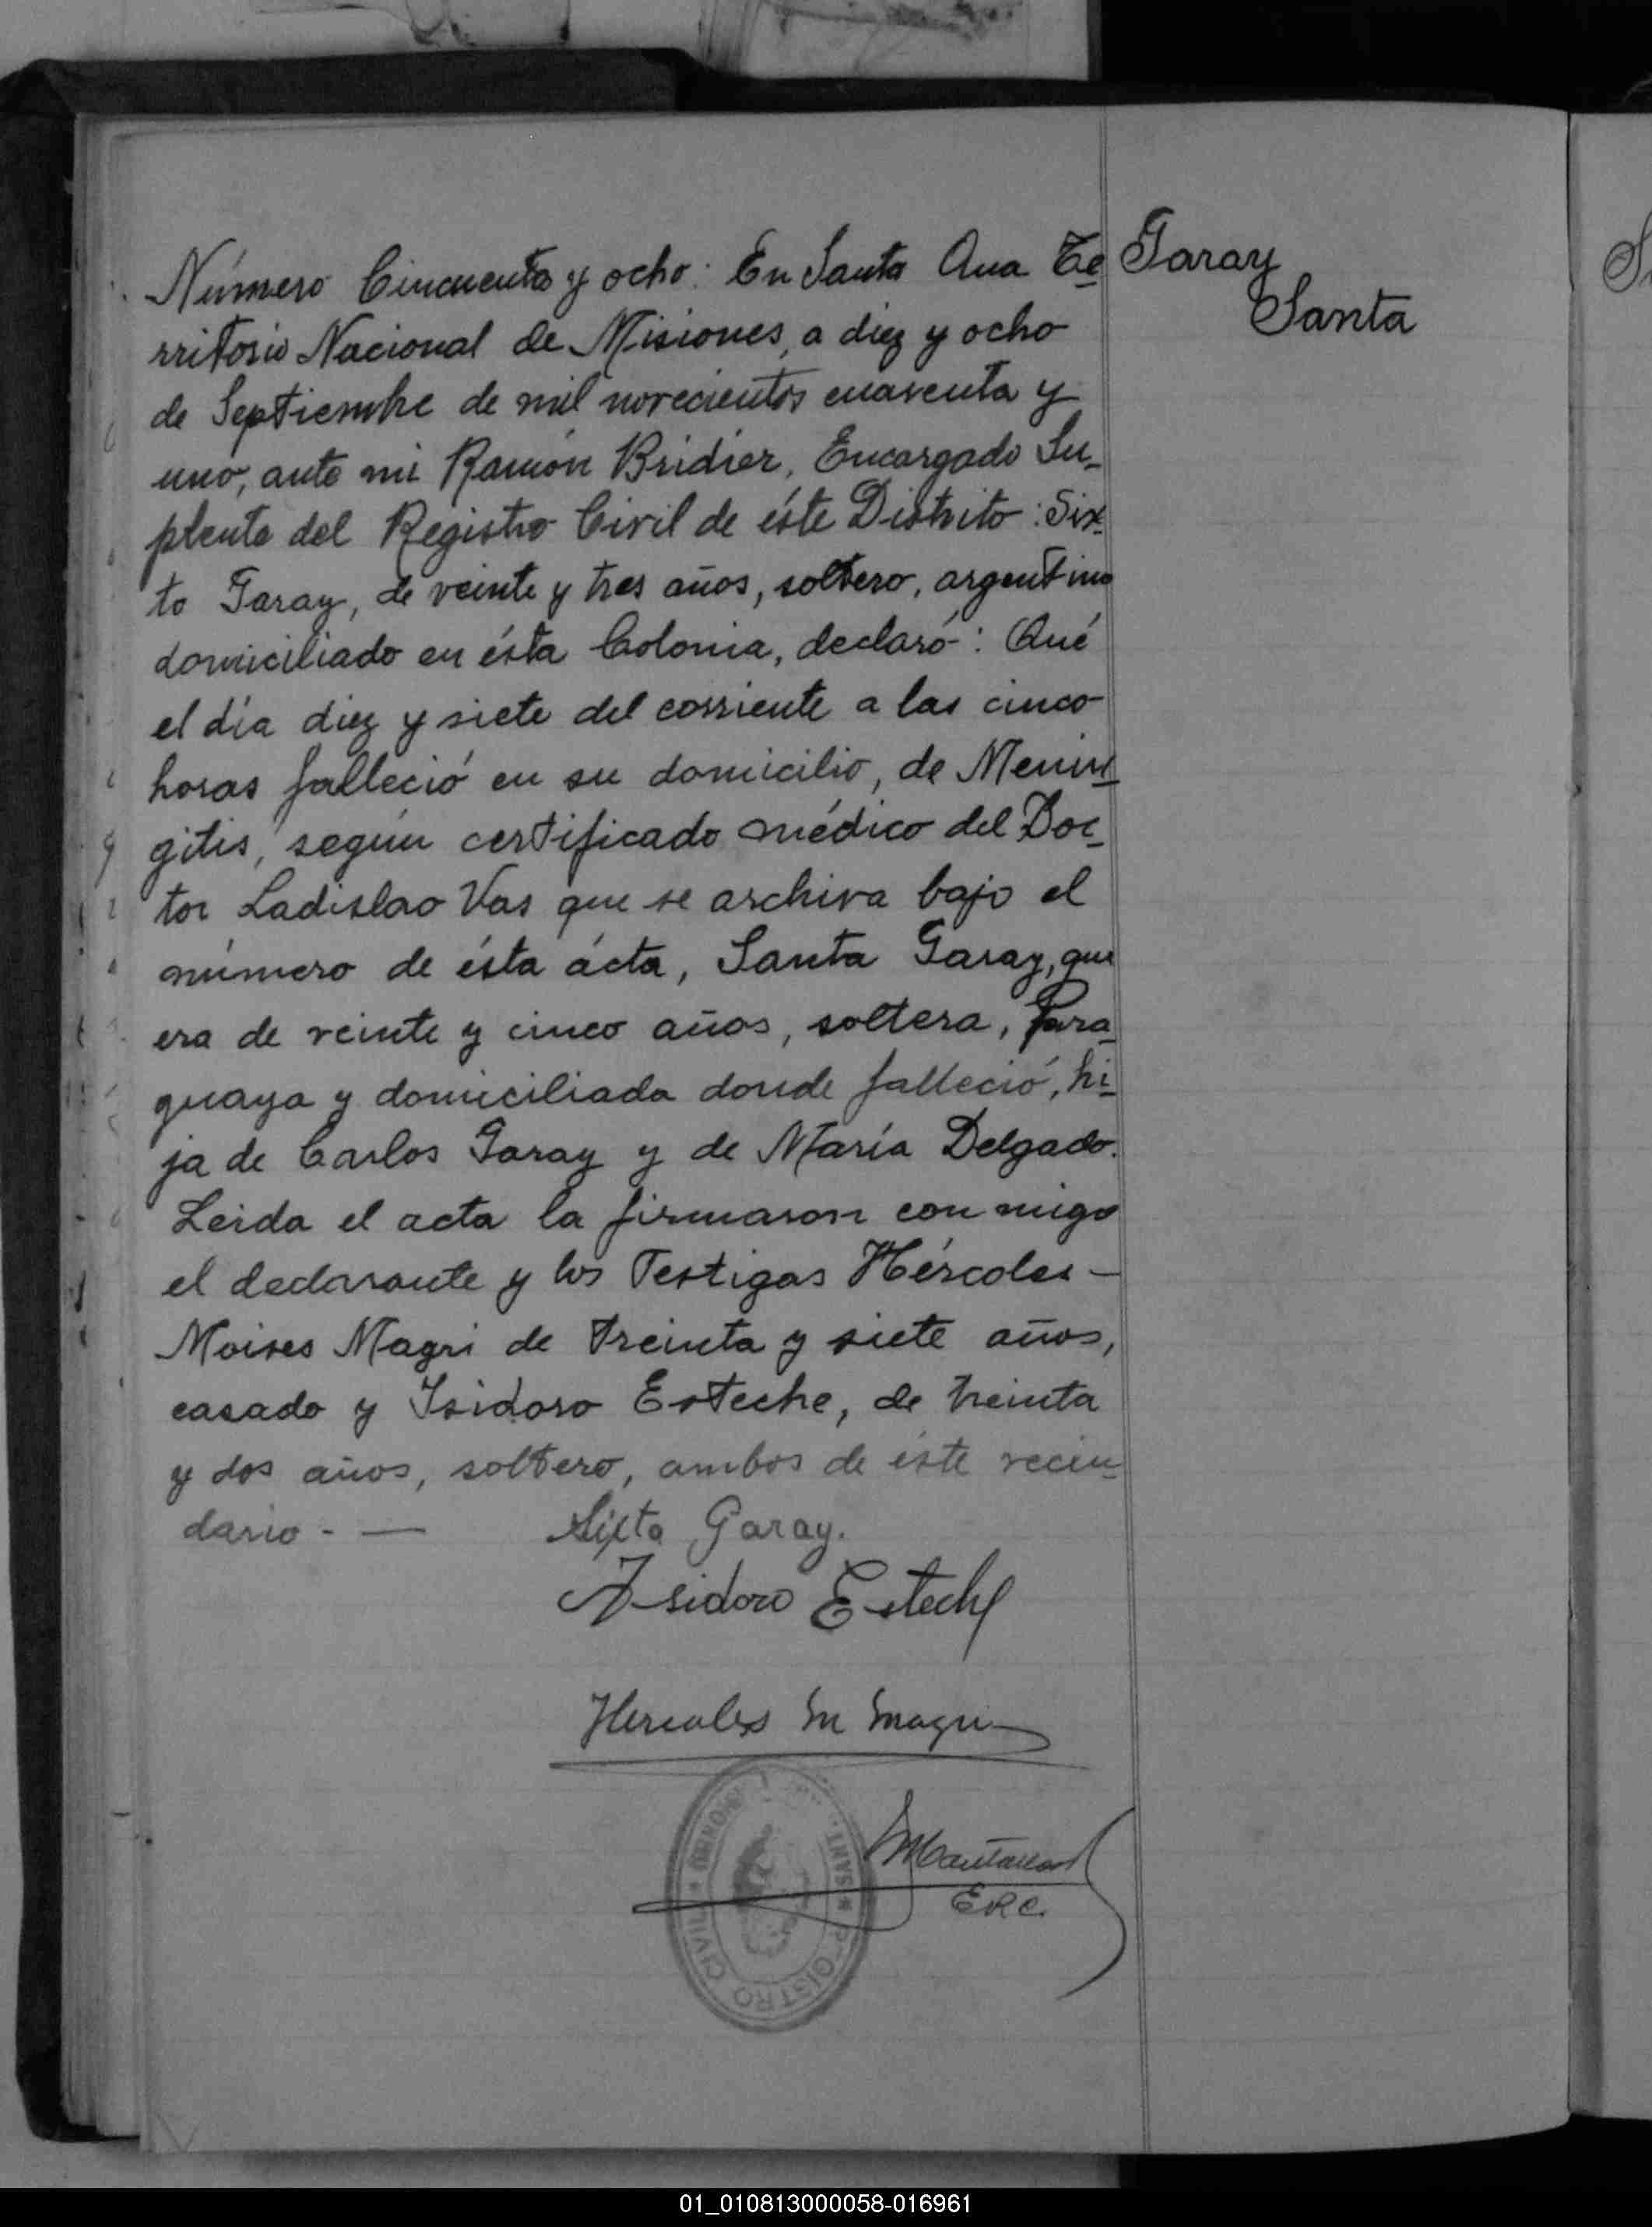 Número Cincuenta y ocho: En Santa Ana Te
rritorio Nacional de Misiones, a diez y ocho
de Septiembre de mil novecientos cuarenta y
uno, ante mi Ramón Bridier, Encargado Su-
plente del Registro Civil de éste Distrito: Six-
to Garay, de veinte y tres años, soltero, argentino
domiciliado en ésta Colonia, declaró: Qué
el día diez y siete del corriente a las cinco
horas falleció en su domicilio, de Menin-
gitis, según certificado médico del Doc-
tor Ladislao Vas que se archiva bajo el
número de ésta ácta, Santa Garay, que
era de veinte y cinco años, soltera, Para-
guaya y domiciliada donde falleció, hi-
ja de Carlos Garay y de María Delgado.
Leida el acta la firmaron con migo
el declarante y los Testigos Hércoles -
Moises Magri de treinta y siete años,
casado y Isidoro Esteche, de treinta
y dos años, soltero, ambos de éste vecin-
dario - —
Garay
Santa
Sixto Garay.
Isidoro Esteche
Hercoles M Magri
E R C.
REGISTRO CIVIL
01_010813000058-016961